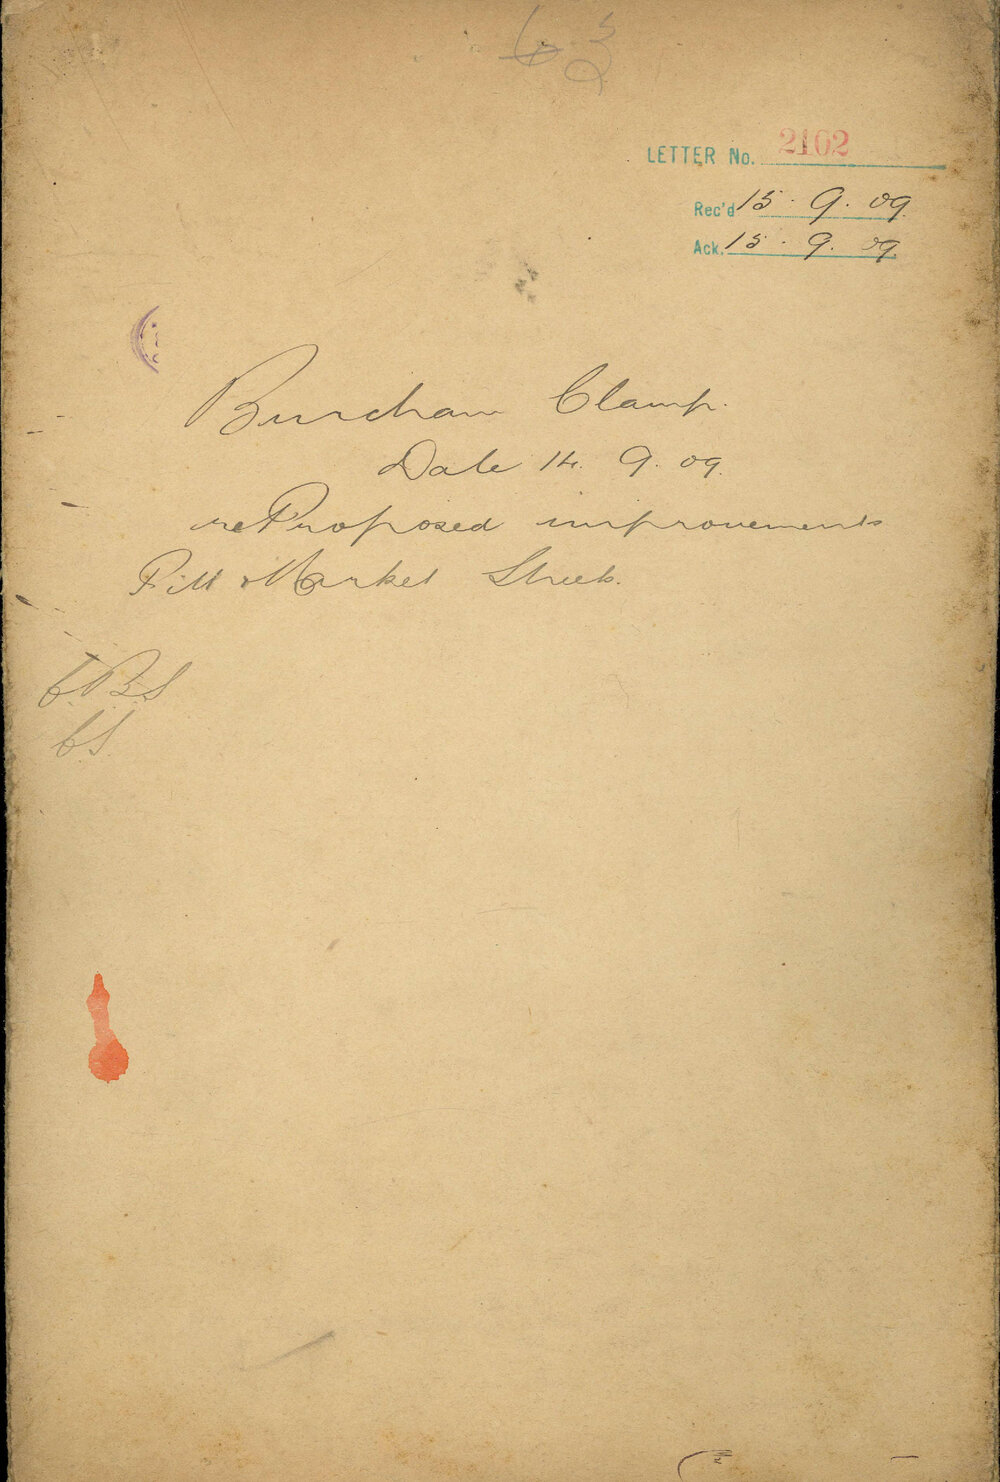 LETTER No. 2102
Rec'd 15. 9. 09.
Ack. 15. 9. 09.
Burcham Clamp.
Date 14. 9. 09.
re Proposed improvements
Pitt & Market Streets.
C.B.S
C.S.